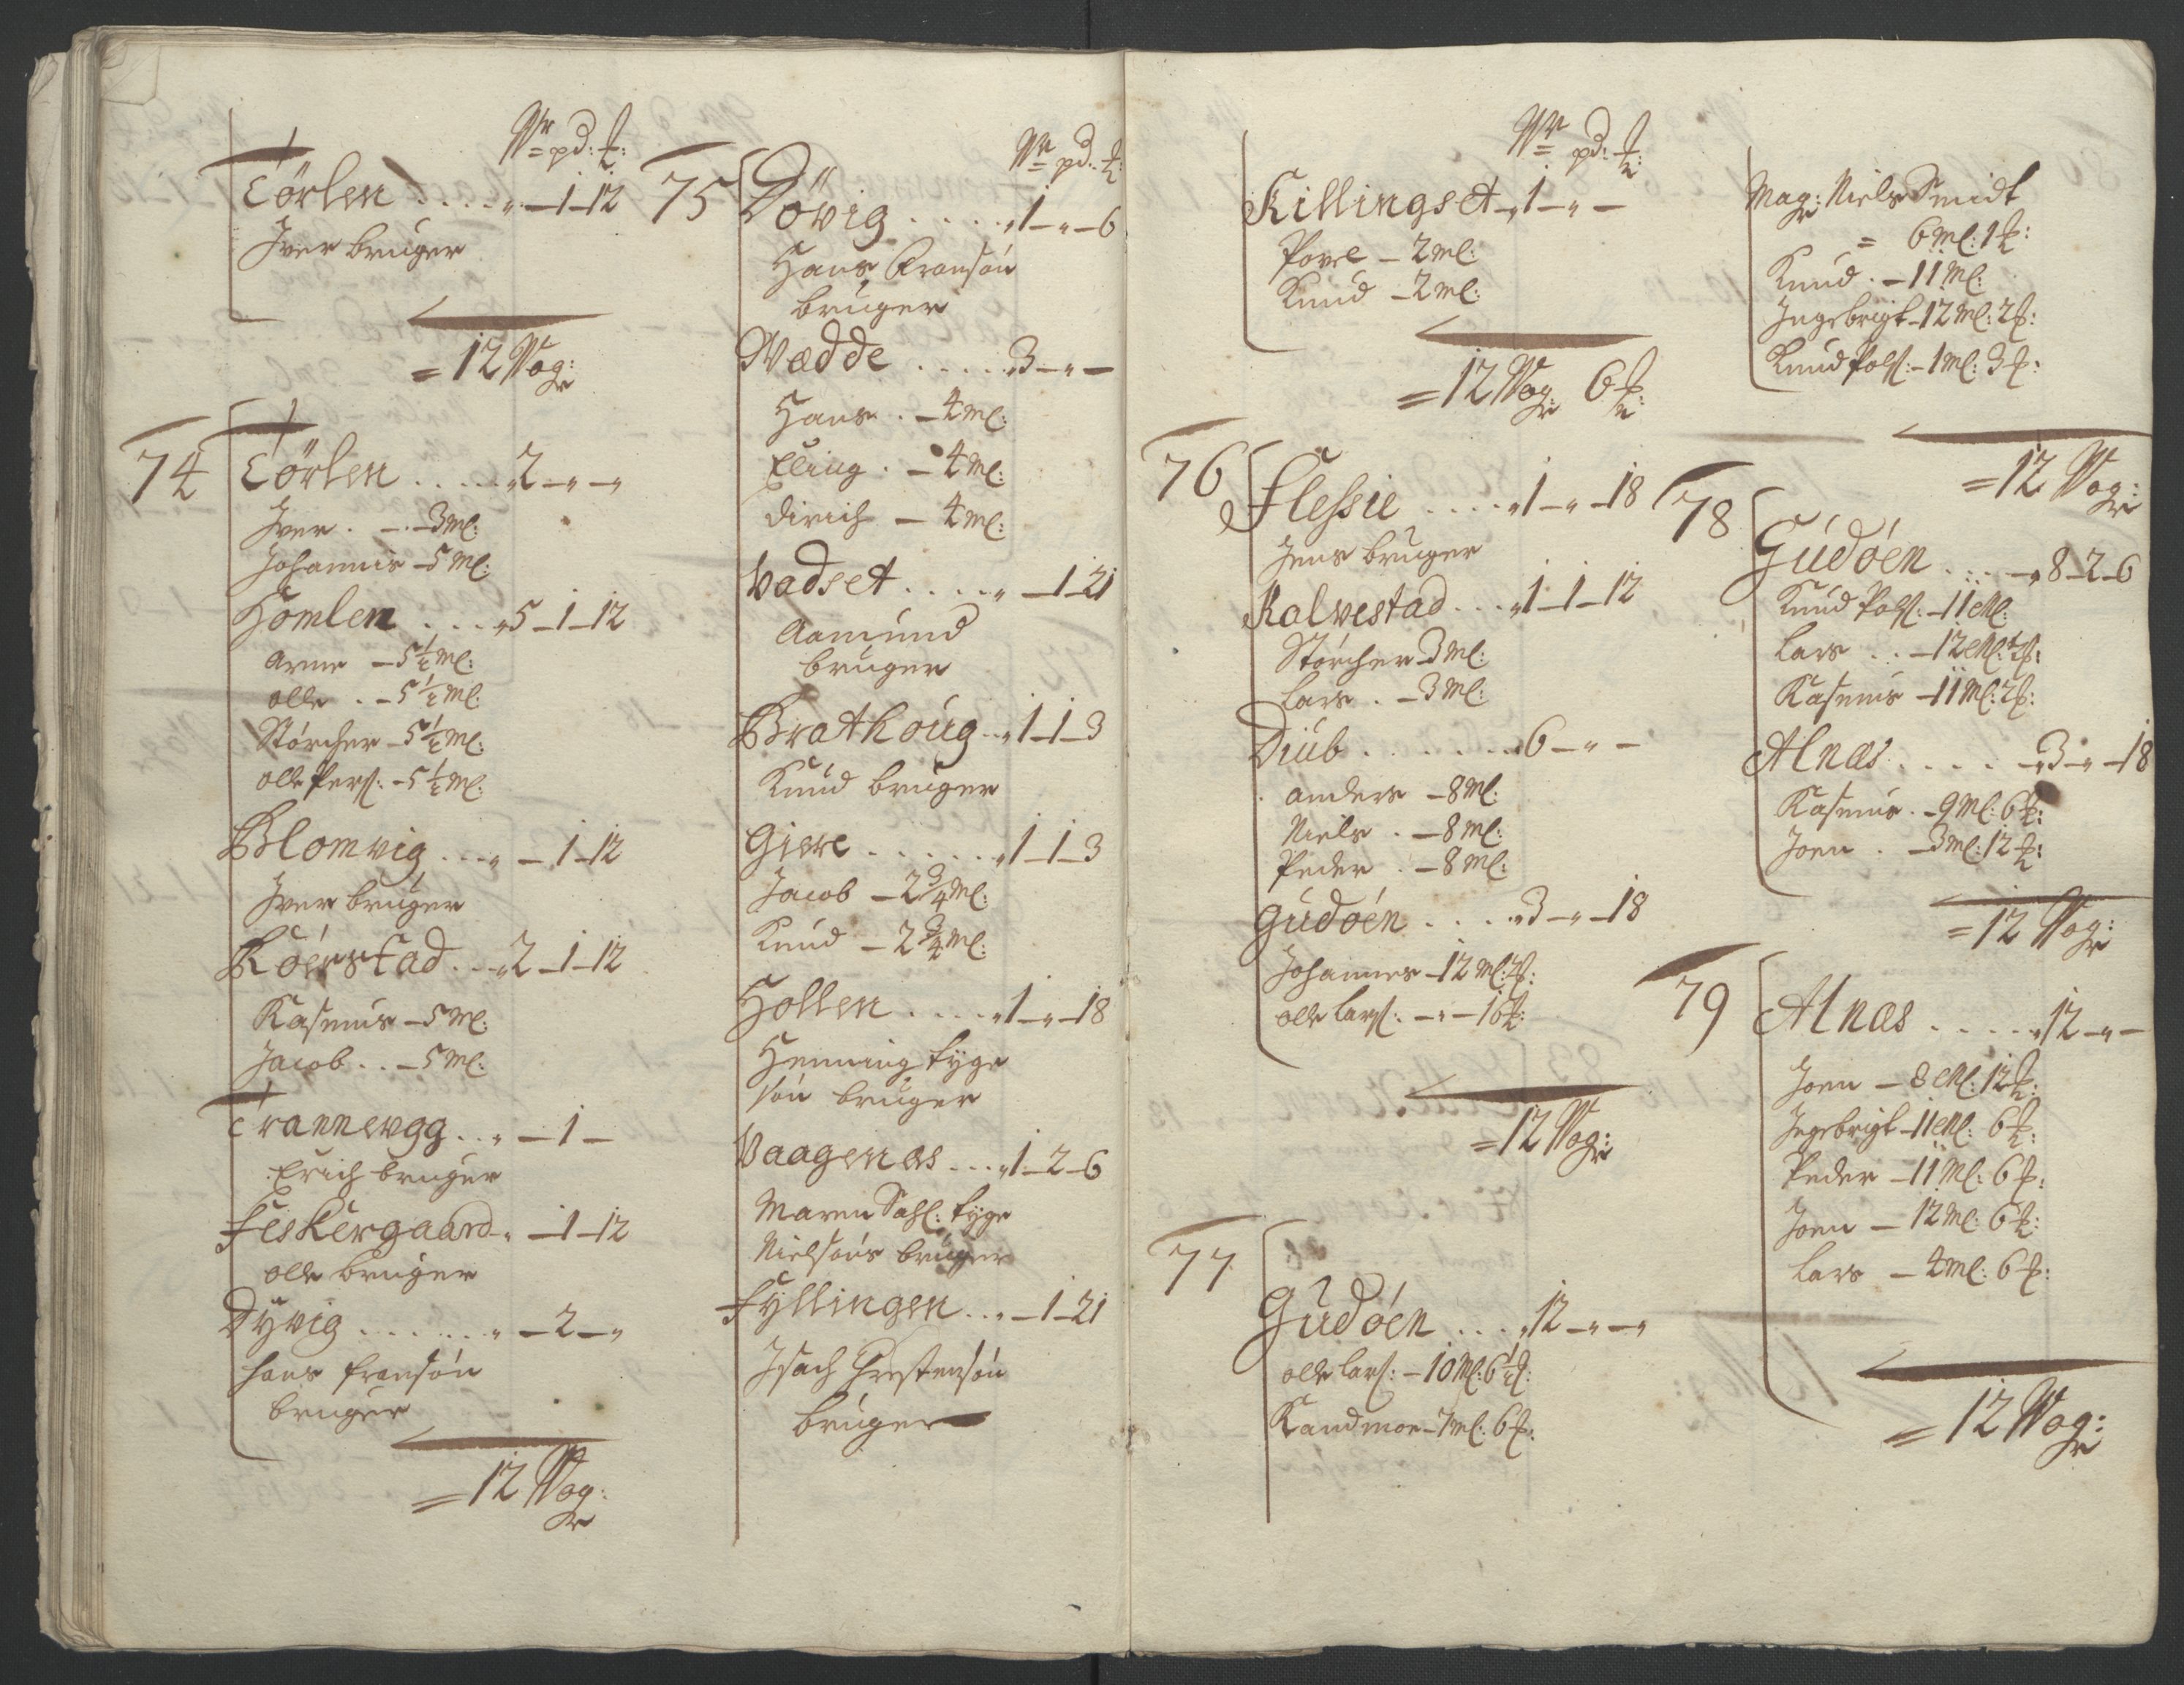 W pd: ℔:
Törlen . . . . „ – 1 – 12
Iver bruger
= 12 Wog:
74 Törlen . . . . . 2 – „ – „
Iver . – . – 3 Ml:
Johannis – 5 Ml:
Homlen . . . 5 – 1 – 12
Arne – 5½ Ml:
Olle . – 5½ Ml:
Störcher – 5½ Ml:
Olle Pers: – 5½ Ml:
Blomvig . . . „ – 1 – 12
Iver bruger
Röerstad . . . 2 – 1 – 12
Rasmus – 5 Ml:
Jacob . . – 5 Ml:
Trannevgg . . „ – 1 –
Erich bruger
Feskergaard – „ – 1 – 12
Olle bruger
Dyvig . . . . . . „ – 2 – „
Hans Fransøn
bruger
= 12 Wog:
W pd: ℔:
75 Dövig . . . . . 1 – „ – 6
Hans Fransøn
bruger
Wædde . . . . . 3 – „ –
Hans . – 4 Ml:
Elling . – 4 Ml:
Dirich – 4 Ml:
Vadset . . . . „ – 1 – 21
Aamund
bruger
Brathoug . . 1 – 1 – 3
Knud bruger
Giere . . . . . . 1 – 1 – 3
Jacob – 2¾ Ml:
Knud – 2¾ Ml:
Hollen . . . . 1 – „ – 18
Henning Tyge
søn bruger
Vaagenæs . . . 1 – 2 – 6
Maren Sahl: Tyge
Nielsøns bruger
Fyllingen . . „ – 1 – 21
Isach Chrestensøn
bruger
W pd: ℔:
Killingset „ 1 – „ –
Povel – 2 Ml:
Knud – 2 Ml:
= 12 Wog: 6 ℔:
76 Flessie . . . . „ 1 – „ – 18
Jens bruger
Kalvestad . . . „ 1 – 1 – 12
Störcher 3 Ml:
Lars . – 3 Ml:
Diub . . . . . . . 6 – „ –
Anders – 8 Ml:
Niels . – 8 Ml:
Peder . – 8 Ml:
Gudöen . . . . „ 3 – „ – 18
Johannes – 12 Ml: 2 ℔:
Olle Lars: – „ – 16 ℔:
= 12 Wog:
77 Gudöen . . . „ 12 – „ – „
Olle Lars: – 10 Ml: 6½ ℔:
– 7 Ml: 6 ℔:
Mag: Niels Smidt
= 6 Ml: 1 ℔:
Knud . – 11 Ml:
Ingebrigt – 12 Ml: 2 ℔:
Knud Pols: – 1 Ml: 3 ℔:
= 12 Wog:
78 Gudöen . . . – „ 8 – 2 – 6
Knud Pols: – 11 Ml:
Lars . . – 12 Ml: 2 ℔:
Rasmus – 11 Ml: 2 ℔:
Alnæs . . . . – „ 3 – „ – 18
Rasmus . – 9 Ml: 6 ℔:
Joen . – 3 Ml: 12 ℔:
= 12 Wog:
79 Alnæs . . . . . „ 12 – „ –
Joen – 8 Ml: 12 ℔:
Ingebrigt – 11 Ml: 6 ℔:
Peder – 11 Ml: 6 ℔:
Joen – 12 Ml: 6 ℔:
Lars – 4 Ml: 6 ℔:
= 12 Wog: